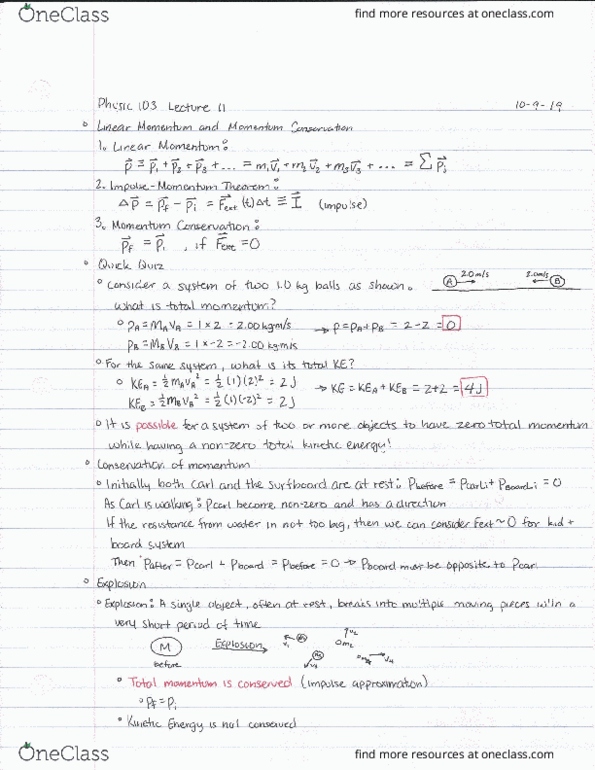 OneClass
find more resources at oneclass.com
Physic 103 Lecture 11
10-9-19
Linear Momentum and Momentum Conservation
1. Linear Momentum:
p⃗ ≡ p⃗₁ + p⃗₂ + p⃗₃ + ... = m₁v⃗₁ + m₂v⃗₂ + m₃v⃗₃ + ... = Σ p⃗ᵢ
2. Impulse-Momentum Theorem:
Δp⃗ = p⃗f - p⃗i = F⃗ext (t)Δt ≡ I⃗ (impulse)
3. Momentum Conservation:
p⃗f = p⃗i , if F⃗ext = 0
Quick Quiz
consider a system of two 1.0 kg balls as shown.
A 2.0m/s 2.0m/s B
what is total momentum?
pA = MAVA = 1 × 2 = 2.00 kgm/s → p = pA + pB = 2 - 2 = 0
pB = MBVB = 1 × -2 = -2.00 kgm/s
For the same system, what is its total KE?
KEA = ½ mAVA² = ½ (1)(2)² = 2J → KE = KEA + KEB = 2+2 = 4J
KEB = ½ mBVB² = ½ (1)(-2)² = 2J
It is possible for a system of two or more objects to have zero total momentum
while having a non-zero total kinetic energy!
Conservation of momentum
Initially both Carl and the surfboard are at rest: Pbefore = Pcarli + Pboardi = 0
As Carl is walking: Pcarl become non-zero and has a direction
If the resistance from water in not too big, then we can consider Fext ~ 0 for kid +
board system
Then Pafter = Pcarl + Pboard = Pbefore = 0 → Pboard must be opposite to Pcarl
Explosion
Explosion: A single object, often at rest, breaks into multiple moving pieces w/in a
very short period of time
M Explosion v₁ v₂ m₂ v₃ v₄
before
Total momentum is conserved (impulse approximation)
Pf = Pi
Kinetic Energy is not conserved
OneClass
find more resources at oneclass.com